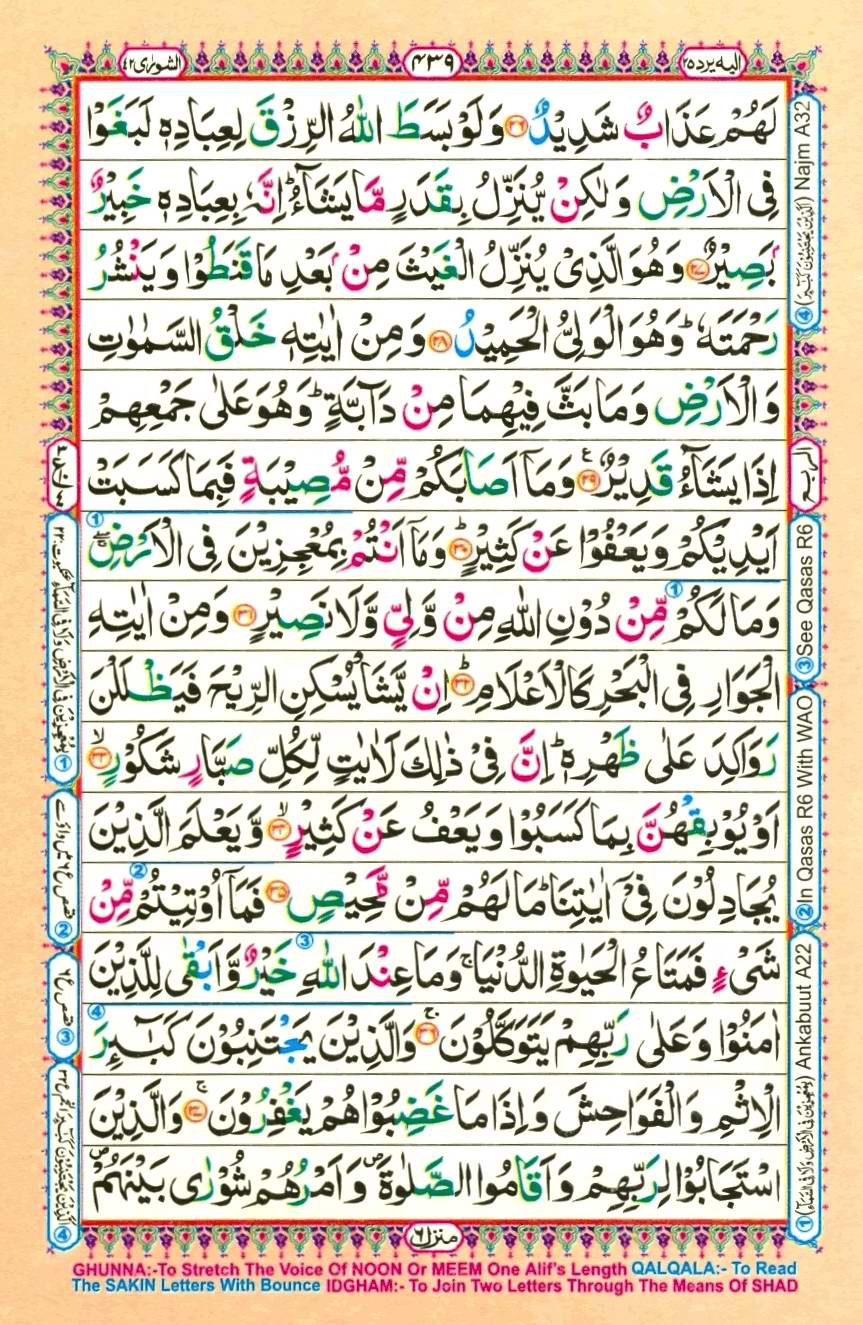 الشورٰى ٤٢
٤٣٩
الیه یرده ٢٥
لَهُمْ عَذَابٌ شَدِيْدٌ ﴿۲۶﴾ وَلَوْ بَسَطَ اللّٰهُ الرِّزْقَ لِعِبَادِهٖ لَبَغَوْا
فِى الْاَرْضِ وَلٰكِنْ يُّنَزِّلُ بِقَدَرٍ مَّا يَشَآءُ ؕ اِنَّهٗ بِعِبَادِهٖ خَبِيْرٌۢ
بَصِيْرٌ ﴿۲۷﴾ وَهُوَ الَّذِىْ يُنَزِّلُ الْغَيْثَ مِنْۢ بَعْدِ مَا قَنَطُوْا وَيَنْشُرُ
رَحْمَتَهٗ ؕ وَهُوَ الْوَلِىُّ الْحَمِيْدُ ﴿۲۸﴾ وَمِنْ اٰيٰتِهٖ خَلْقُ السَّمٰوٰتِ
وَالْاَرْضِ وَمَا بَثَّ فِيْهِمَا مِنْ دَآبَّةٍ ؕ وَهُوَ عَلٰى جَمْعِهِمْ
اِذَا يَشَآءُ قَدِيْرٌ ﴿۲۹﴾ وَمَاۤ اَصَابَكُمْ مِّنْ مُّصِيْبَةٍ فَبِمَا كَسَبَتْ
اَيْدِيْكُمْ وَيَعْفُوْا عَنْ كَثِيْرٍ ﴿۳۰﴾ وَمَاۤ اَنْتُمْ بِمُعْجِزِيْنَ فِى الْاَرْضِ
وَمَا لَكُمْ مِّنْ دُوْنِ اللّٰهِ مِنْ وَّلِىٍّ وَّلَا نَصِيْرٍ ﴿۳۱﴾ وَمِنْ اٰيٰتِهِ
الْجَوَارِ فِى الْبَحْرِ كَالْاَعْلَامِ ﴿۳۲﴾ اِنْ يَّشَاْ يُسْكِنِ الرِّيْحَ فَيَظْلَلْنَ
رَوَاكِدَ عَلٰى ظَهْرِهٖ ؕ اِنَّ فِىْ ذٰلِكَ لَاٰيٰتٍ لِّكُلِّ صَبَّارٍ شَكُوْرٍ ﴿۳۳﴾
اَوْ يُوْبِقْهُنَّ بِمَا كَسَبُوْا وَيَعْفُ عَنْ كَثِيْرٍ ﴿۳۴﴾ وَّيَعْلَمَ الَّذِيْنَ
يُجَادِلُوْنَ فِىْۤ اٰيٰتِنَا مَا لَهُمْ مِّنْ مَّحِيْصٍ ﴿۳۵﴾ فَمَاۤ اُوْتِيْتُمْ مِّنْ
شَىْءٍ فَمَتَاعُ الْحَيٰوةِ الدُّنْيَا ۚ وَمَا عِنْدَ اللّٰهِ خَيْرٌ وَّاَبْقٰى لِلَّذِيْنَ
اٰمَنُوْا وَعَلٰى رَبِّهِمْ يَتَوَكَّلُوْنَ ﴿۳۶﴾ وَالَّذِيْنَ يَجْتَنِبُوْنَ كَبٰٓئِرَ
الْاِثْمِ وَالْفَوَاحِشَ وَاِذَا مَا غَضِبُوْا هُمْ يَغْفِرُوْنَ ﴿۳۷﴾ وَالَّذِيْنَ
اسْتَجَابُوْا لِرَبِّهِمْ وَاَقَامُوا الصَّلٰوةَ ۪ وَاَمْرُهُمْ شُوْرٰى بَيْنَهُمْ ۪
④ (اَلَّذِيْنَ يَجْتَنِبُوْنَ كَبٰٓئِرَ) Najm A32
الربع
③ See Qasas R6
② In Qasas R6 With WAO
① (بِمُعْجِزِيْنَ فِى الْاَرْضِ وَلَا فِى السَّمَآءِ) Ankabuut A22
② قصص ع ٦ میں واؤ سے
③ قصص ع ٦
منزل ٦
GHUNNA:-To Stretch The Voice Of NOON Or MEEM One Alif's Length QALQALA:- To Read
The SAKIN Letters With Bounce IDGHAM:- To Join Two Letters Through The Means Of SHAD